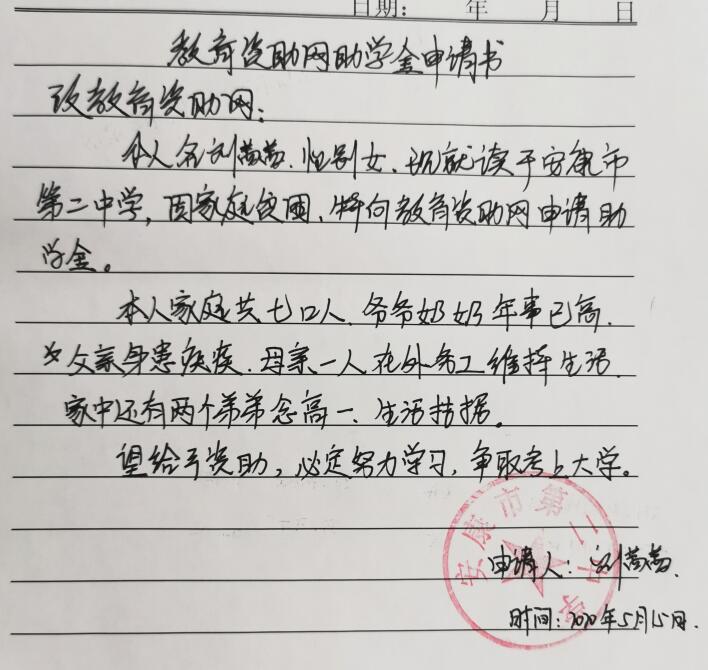 日期： 年 月 日
教育资助网助学金申请书
致教育资助网：
本人名刘茜茜，性别女，现就读于安康市
第二中学，因家庭贫困，特向教育资助网申请助
学金。
本人家庭共七口人，爷爷奶奶年事已高，
父亲身患疾病，母亲一人在外务工维持生活，
家中还有两个弟弟念高一，生活拮据。
望给予资助，必定努力学习，争取考上大学。
安康市第二中学
申请人：刘茜茜.
时间：2020年5月15日.